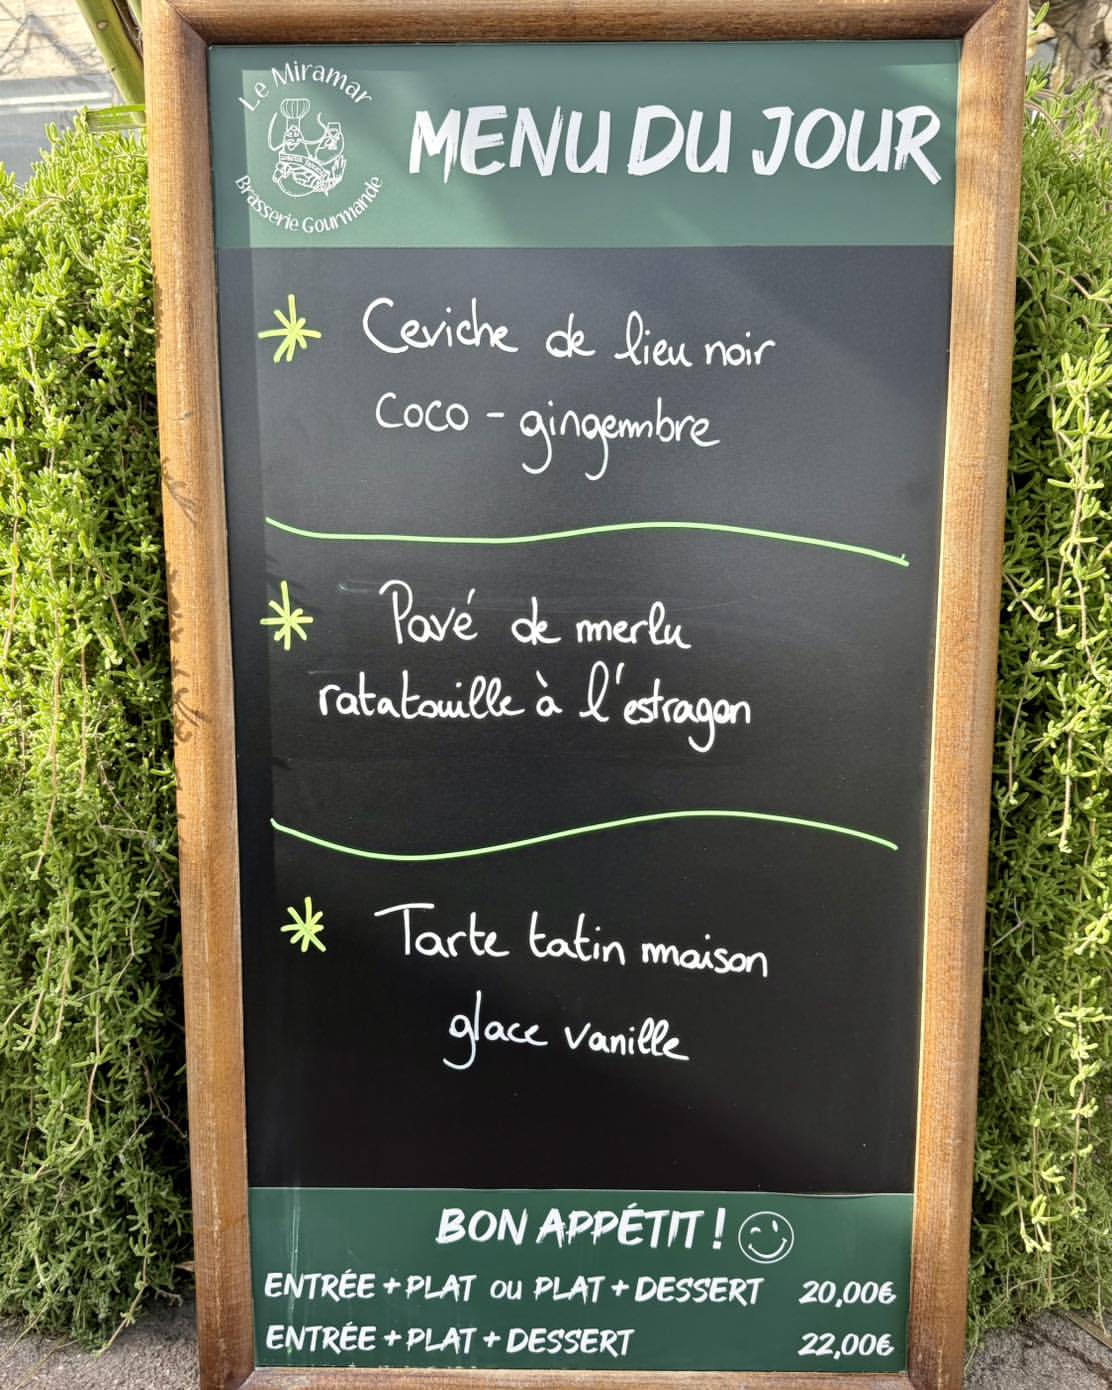 Le Miramar
Brasserie Gourmande
MENU DU JOUR
Ceviche de lieu noir
coco - gingembre
Pavé de merlu
ratatouille à l'estragon
Tarte tatin maison
glace vanille
BON APPÉTIT !
ENTRÉE + PLAT OU PLAT + DESSERT 20,00€
ENTRÉE + PLAT + DESSERT 22,00€